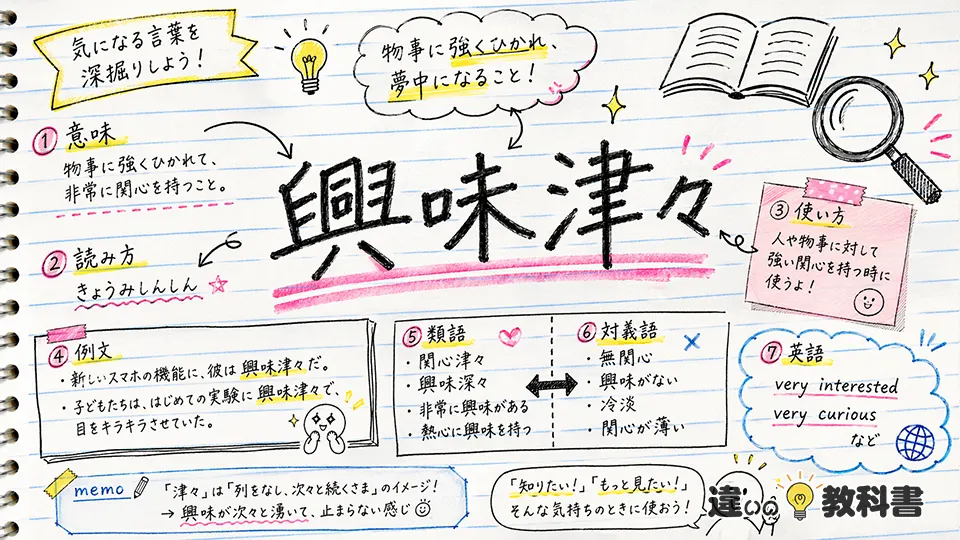 気になる言葉を
深掘りしよう！
物事に強くひかれ、
夢中になること！
① 意味
物事に強くひかれて、
非常に関心を持つこと。
興味津々
② 読み方
きょうみしんしん
③ 使い方
人や物事に対して
強い関心を持つ時に
使うよ！
④ 例文
・新しいスマホの機能に、彼は興味津々だ。
・子どもたちは、はじめての実験に興味津々で、
目をキラキラさせていた。
⑤ 類語
・関心津々
・興味深々
・非常に興味がある
・熱心に興味を持つ
⑥ 対義語
・無関心
・興味がない
・冷淡
・関心が薄い
⑦ 英語
very interested
very curious
など
memo
「津々」は「列をなし、次々と続くさま」のイメージ！
→ 興味が次々と湧いて、止まらない感じ
「知りたい！」「もっと見たい！」
そんな気持ちのときに使おう！
教科書